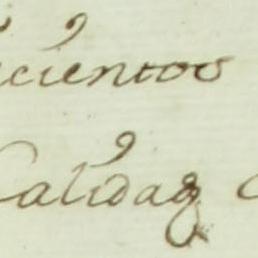 icientos
Calidad